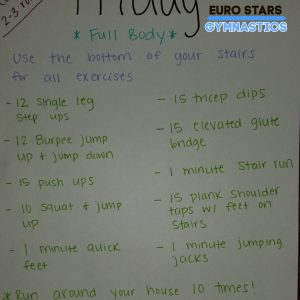 Friday
2-3
EURO STARS
GYMNASTICS
* Full Body *
Use the bottom of your stairs
for all exercises
- 12 single leg
step ups
- 12 Burpee jump
up + jump down
- 15 push ups
- 10 squat + jump
up
- 1 minute quick
feet
- 15 tricep dips
- 15 elevated glute
bridge
- 1 minute stair run
- 15 plank shoulder
taps w/ feet on
stairs
- 1 minute jumping
jacks
* Run around your house 10 times!